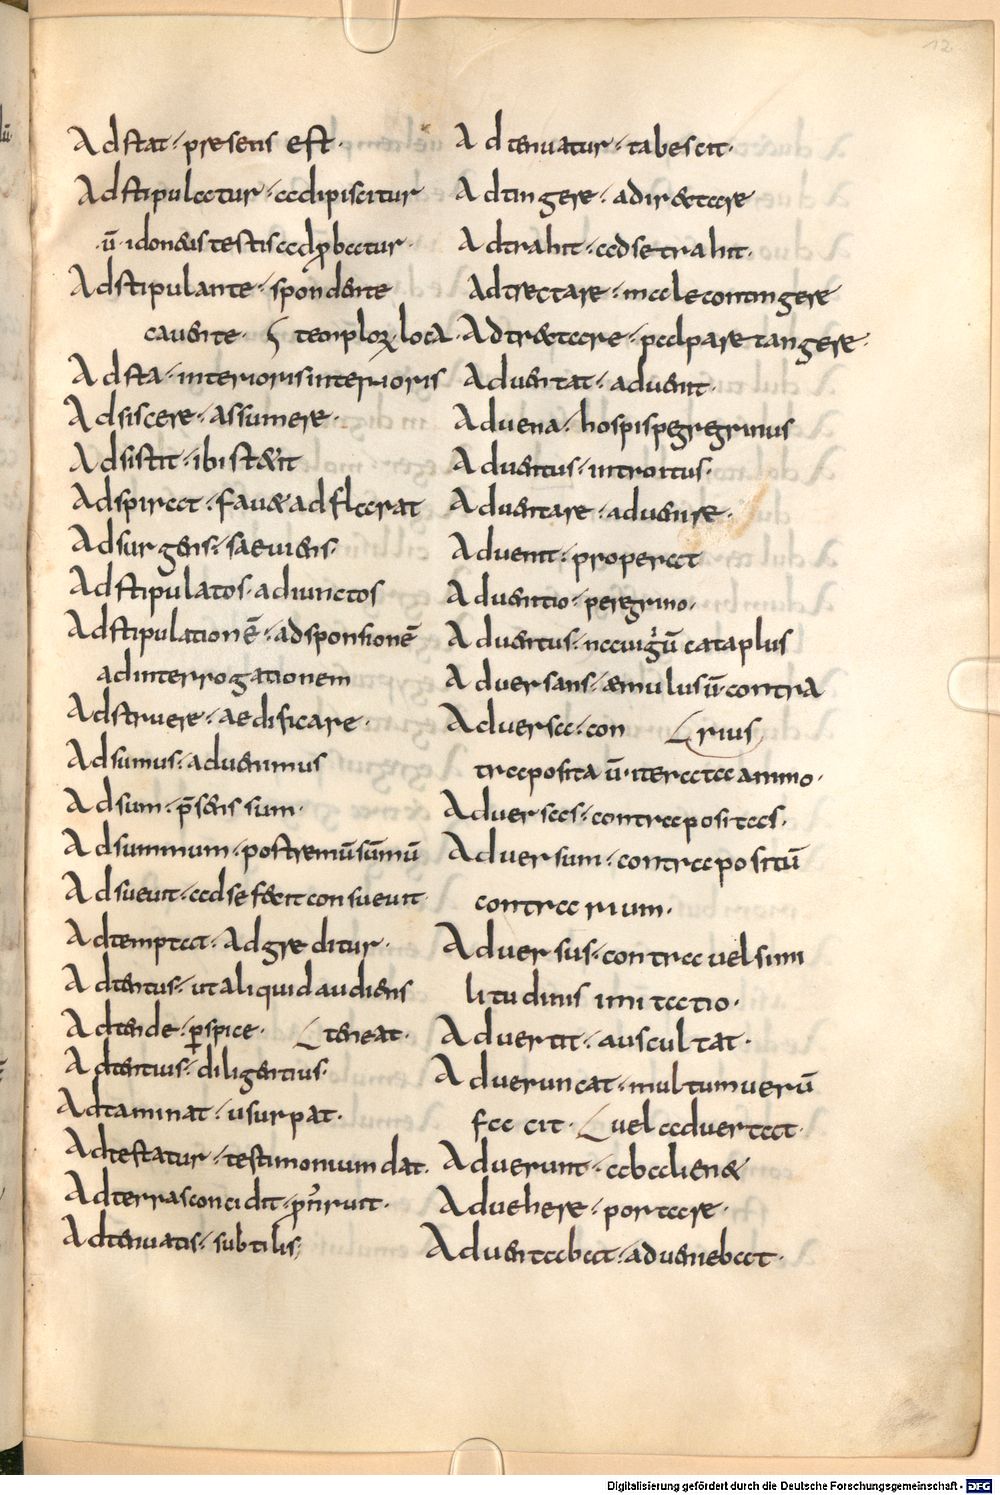 12
Adstat · presens est ·
Adstipulatur · adipiscitur
· ū · idoneis testis adprbatur ·
Adstipulante · spondente
cavente · temploꝝ loca ·
Adsta · interioris interioris
Adsiscere · assumere ·
Adsistit · ibi stetit
Adspirat · favet adflerat
Adsurgens · saeviens ·
Adstipulatos · adiunctos
Adstipulationē · adsponsionē
adinterrogationem
Adstruere · aedificare ·
Adsumus · advenimus
Adsum · p̄sens sum ·
Adsummum · postremū sūmū
Adsuevit · adse fecit consuevit ·
Adtemptat · Adgreditur ·
Adtentus · ut aliquid audiens
Adtende · ꝑspice · teneat ·
Adtentius · diligentius ·
Adtaminat · usurpat ·
Adtestatur · testimonium dat ·
Adterras concidit · ꝓruit ·
Adtenuatis · subtilis ;
Adtenuatur · tabescit ·
Adtingere · adirectare
Adtrahit · adse trahit ·
Adtrectare · male contingere
Adtretare · palpare tangere ·
Adventat · advenit ·
Advena · hospis peregrinus
Adventus · introitus ·
Adventare · advenire ·
Advenit · properat
Adventio · peregrino ·
Adventus · navigiū cataplus
Adversans · æmulus ū · contra
Adversa · con rius
traposita ū · iterata animo ·
Adversas · contrapositas ·
Adversum · contrapositū
contrarium ·
Adversus · contra vel simi
litudinis imitatio ·
Advertit · auscultat ·
Adveruncat · multum verū
facit · vel advertat ·
Adverunt · abalienet
Advehere · portare ·
Adventabat · adveniebat ·
Digitalisierung gefördert durch die Deutsche Forschungsgemeinschaft - DFG